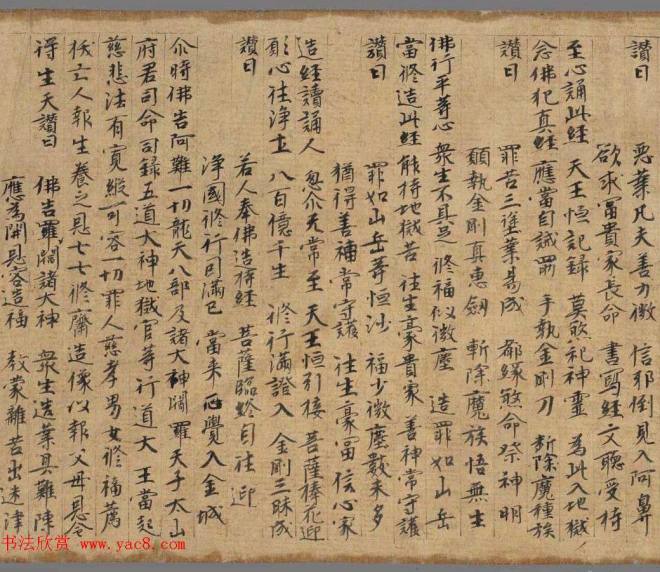 讚曰
惡業凡夫善力微　信邪倒見入阿鼻
欲求冨貴家長命　書寫經文聽受持
至心誦此經　天王恒記録　莫煞祀神靈　為此入地獄
念佛犯真經　應當自誡罰　手執金剛刀　斬除魔種族
讚曰
罪苦三塗業易成　都緣煞命祭神明
願執金剛真惠劔　斬除魔族悟無生
佛行平等心　衆生不具足　修福似微塵　造罪如山岳
當修造此經　能持地獄苦　往生豪貴家　善神常守護
讚曰
罪如山岳等恒沙　福少微塵數未多
猶得善神常守護　往生豪冨信心家
造經讀誦人　忽尒无常至　天王恒引接　菩薩捧花迎
願心往浄土　八百億千生　修行滿證入　金剛三昧成
讚曰
若人奉佛造持經　菩薩臨終自往迎
浄國修行因滿已　當来正覺入金城
尒時佛告阿難一切龍天八部及諸大神閻羅天子太山
府君司命司録五道大神地獄官等行道大王當起
慈悲法有寬縱可容一切罪人慈孝男女修福薦
拔亡人報生養之恩七七修齋造像以報父母恩令
得生天讚曰
佛告閻羅諸大神　衆生造業具難陳
應為開恩容造福　教蒙離苦出迷津
书法欣赏 www.yac8.com